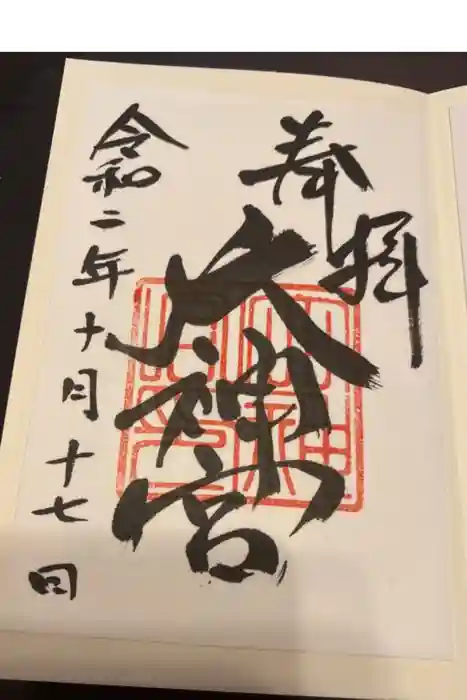 奉拝
大神宮
令和二年十月十七日